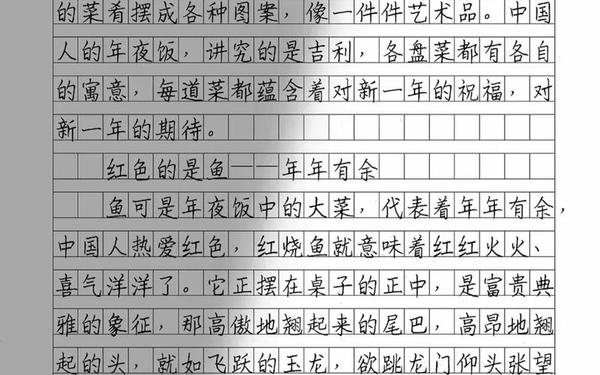 的菜肴摆成各种图案，像一件件艺术品。中国
人的年夜饭，讲究的是吉利，各盘菜都有各自
的寓意，每道菜都蕴含着对新一年的祝福，对
新一年的期待。
红色的是鱼——年年有余
鱼可是年夜饭中的大菜，代表着年年有余，
中国人热爱红色，红烧鱼就意味着红红火火、
喜气洋洋了。它正摆在桌子的正中，是富贵典
雅的象征，那高傲地翘起来的尾巴，高昂地翘
起的头，就如飞跃的玉龙，欲跳龙门仰头张望